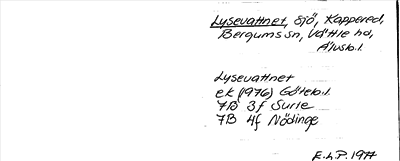 Lysevattnet, sjö, Kappered,
Bergums sn, Vättle hd,
Älvsb.l.
Lysevattnet
ek (1976) Göteb.l.
7B 3f Surte
7B 4f Nödinge
E.h.P. 1977